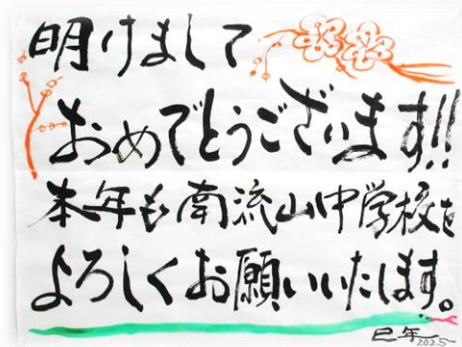 明けまして
おめでとうございます!!
本年も南流山中学校を
よろしくお願いいたします。
巳年
2025